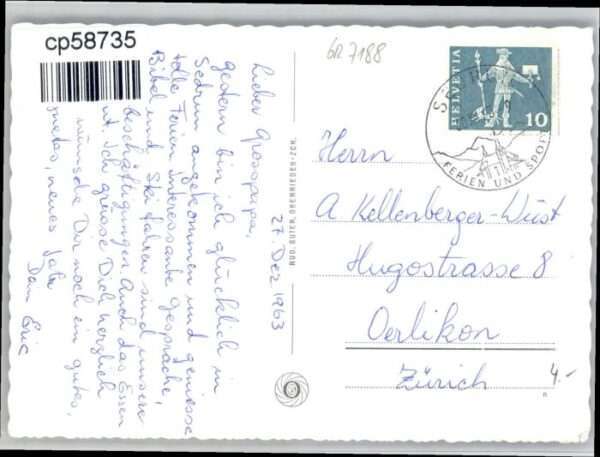 cp58735
GR 7188
HELVETIA
10
SEDRUN
FERIEN UND SPORT
27. Dez 1963
Lieber Grosspapa,
gestern bin ich glücklich in
Sedrun angekommen und geniesse
tolle Ferien. Interessante Gespräche,
Bibel und Ski fahren sind unsere
Beschäftigungen. Auch das Essen
ist. Ich grüsse Dich herzlich
wünsche Dir noch ein gutes,
neues Jahr
Dein Eric
RUD. SUTER, OBERRIEDEN-ZCH.
Herrn
A Kellenberger-Wüst
Hugostrasse 8
Oerlikon
Zürich
4.-